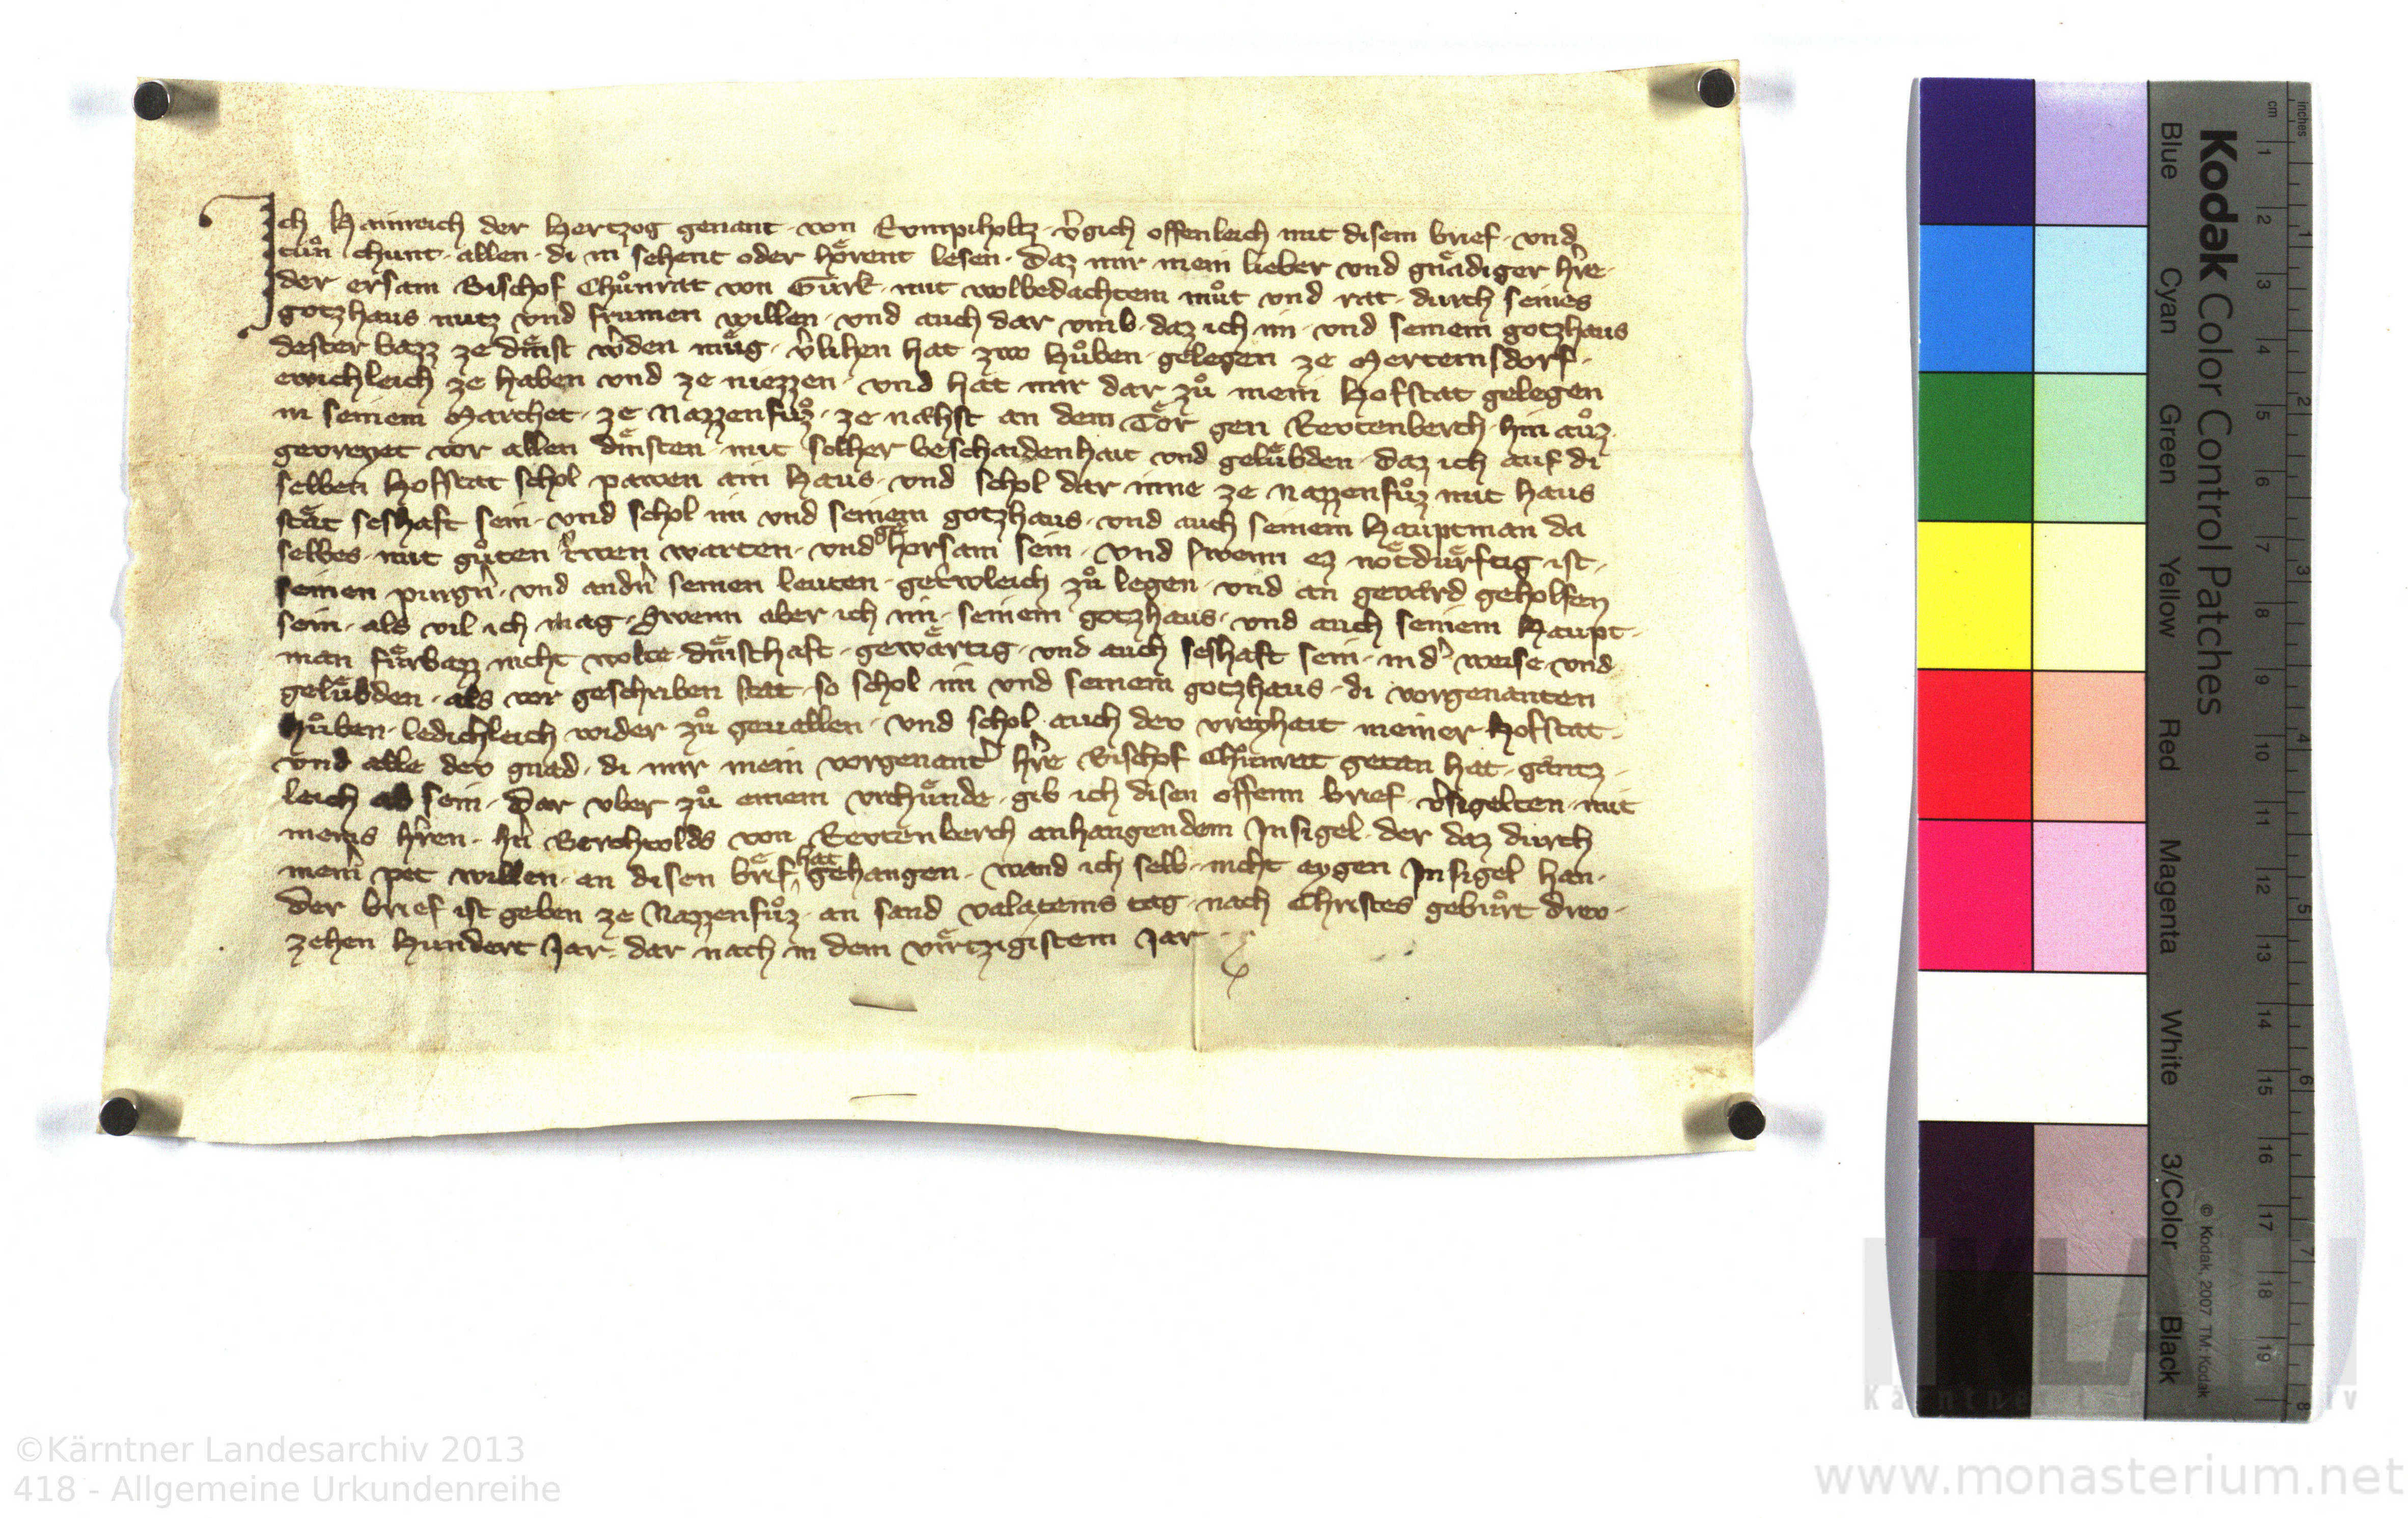 Ich Hainreich der Hertzog genant · von Rumpiholtz · v̾gich offenleich mit disem brief · vnd
tuͦn chunt · allen · di in sehent oder hoͤrent lesen · Daz mir mein lieber vnd gnaͤdiger h̾re ·
der ersam Bischof Chuͦnrat von Gurk · mit wolbedachtem muͦt vnd rat · durch seines
gotzhaus nutz vnd frumen willen · vnd auch dar vmb · daz ich im · vnd seinem gotzhaus
dester bazz ze dinͤst w̾den muͤg · v̾lihen hat zwo Huͦben · gelegen ze Merteinsdorf ·
ewichleich ze haben vnd ze niezzen · vnd hat mir dar zuͦ mein Hofstat gelegen
in seinem Marchet · ze Nazzenfuͦz · ze nahst an dem Toͤr gen Revtenberch · hin auͦz
gevreyet vor allen dinͤsten · mit solher beschaidenhait vnd geluͤbden · daz ich auf di
selben Hofstat schol pawen ain Haus · vnd schol dar inne ze Nazzenfuͦz mit haus
staͤt seshaft sein · vnd schol im vnd seinem gotzhaus · vnd auch seinem Hauptman da
selbes · mit guͦten trwen warten · vnd gehorsam sein · vnd swenn ez noͤtduͤrftig ist ·
seinen purgn̾ · vnd andn̾ seinen leuten · getrwleich zuͦ legen · vnd an gevaͤrd geholfen
sein · als vil ich mag · Swenn aber ich im · seinem gotzhaus · vnd auch seinem Haupt ·
man fuͤrbazz nicht wolte · dinͤsthaft · gewaͤrtig · vnd auch seshaft sein · in d̾ weise vnd
geluͤbden · als vor geschriben stat · so schol im vnd seinem gotzhaus · di vorgenanten
huͦben · ledichleich wider zuͦ geuallen · vnd schol auch dev vreyhait meiner Hofstat ·
vnd alle dev gnad · di mir mein vorgenant̾ h̾re Bischof Chuͦnrat getan hat · gantz ·
leich ab sein · Dar vber zuͦ einem vrchuͤnde · gib ich disen offenn brief · v̾sigelten · mit
meins h̾ren · h̾n Berchtolds von Revtenberch anhangendem Insigel · der daz durch
mein̾ pet willen · an disen brif hat gehangen · wand ich selb · nicht eygen Insigel han ·
Der brief ist geben ze Nazzenfuͦz · an sand valateins tag · nach Christes gebuͦrt drev ·
zehen Hundert Jar · dar nach in dem virͤtzigistem Jar ·
Kodak Color Control Patches
Blue Cyan Green Yellow Red Magenta White 3/Color Black
© Kodak, 2007 TM: Kodak
cm 1 2 3 4 5 6 7 8 9 10 11 12 13 14 15 16 17 18 19
inches 1 2 3 4 5 6 7 8
©Kärntner Landesarchiv 2013
418 - Allgemeine Urkundenreihe
www.monasterium.net